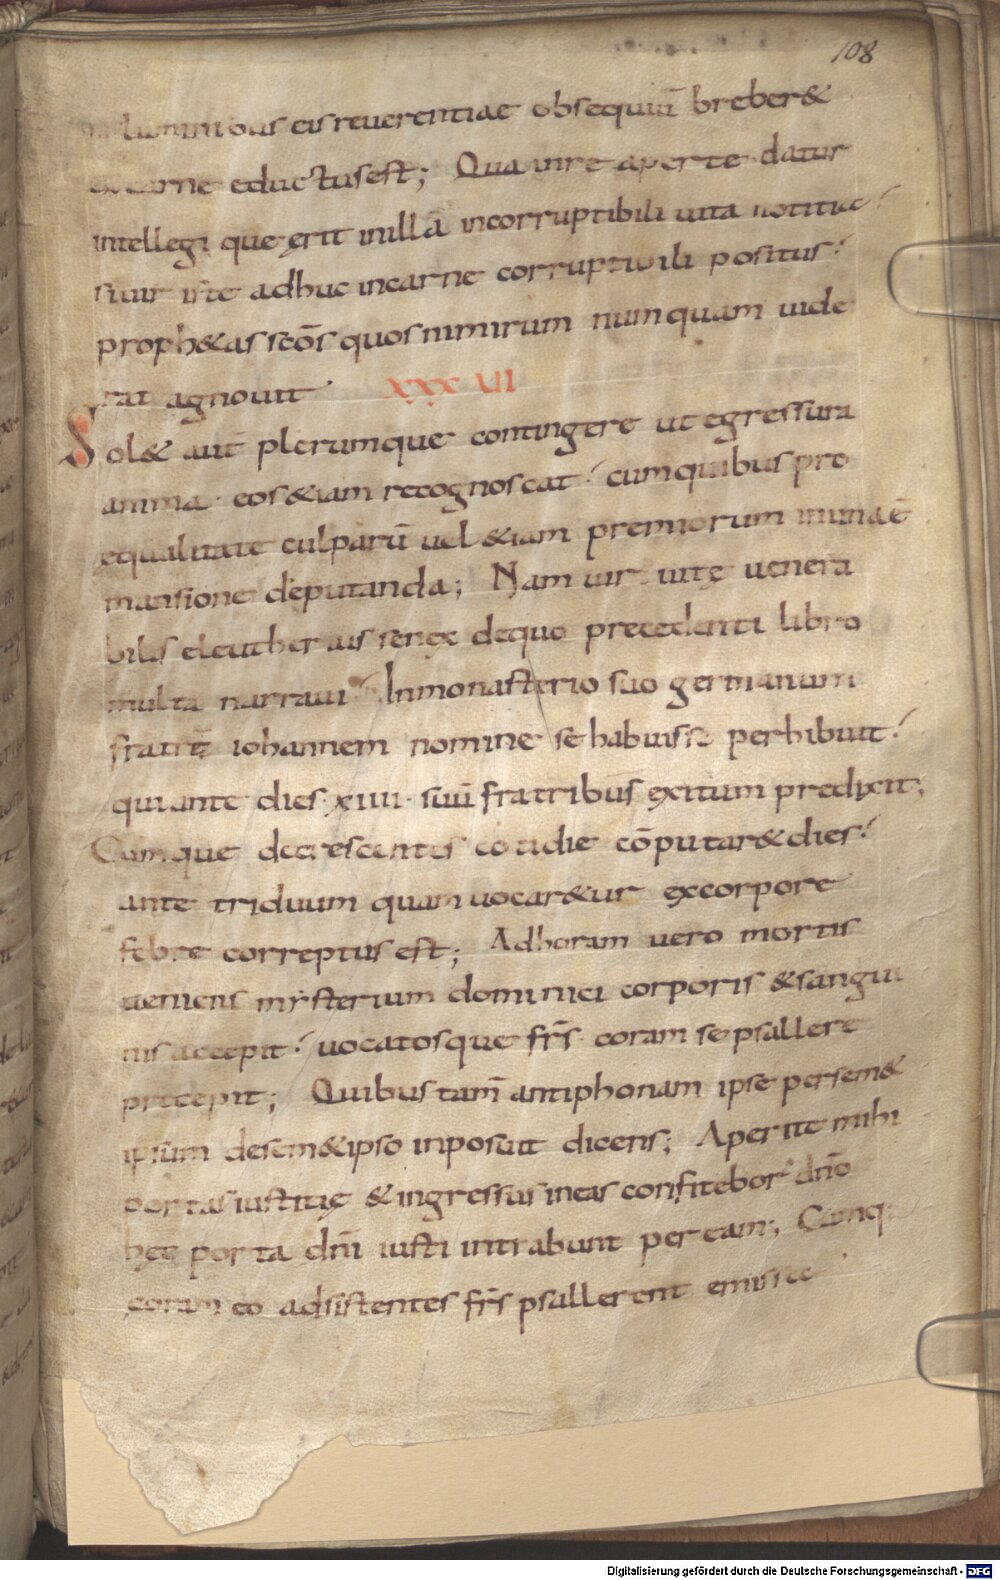 108
luminibus eis reuerentiae obsequiū breber&
carne eductus est; Qua in re aperte datur
intellegi que ęrit in illa incorruptibili uita notitia
si uir iste adhuc in carne corruptibili positus
proph&as sc̄os quos nimirum numquam uide
rat agnouit XXXVII
Sol& aut̄ plerumque contingere ut egressura
anima eos &iam recognoscat cum quibus pro
equalitate culparū uel &iam premiorum in una ē
mansione deputanda; Nam uir uitę uenera
bilis eleutherius senex de quo precedenti libro
multa narraui In monasterio suo germanum
fratrē iohannem nomine se habuisse perhibuit
qui ante dies xiiii suū fratribus exitum predixit;
Cumque decrescentes cotidie cōputar& dies
ante triduum quam uocar&ur ex corpore
febre correptus est; Ad horam uero mortis
ueniens mysterium dominici corporis & sangui
nis accepit uocatosque fr̄s coram se psallere
precepit; Quibus tam̄ antiphonam ipse per sem&
ipsum de sem&ipso inposuit dicens; Aperite mihi
portas iustitię & ingressus in eas confitebor dn̄o
hec porta dn̄i iusti intrabunt per eam; Cumq·
coram eo adsistentes fr̄s psallerent emissa
Digitalisierung gefördert durch die Deutsche Forschungsgemeinschaft - DFG